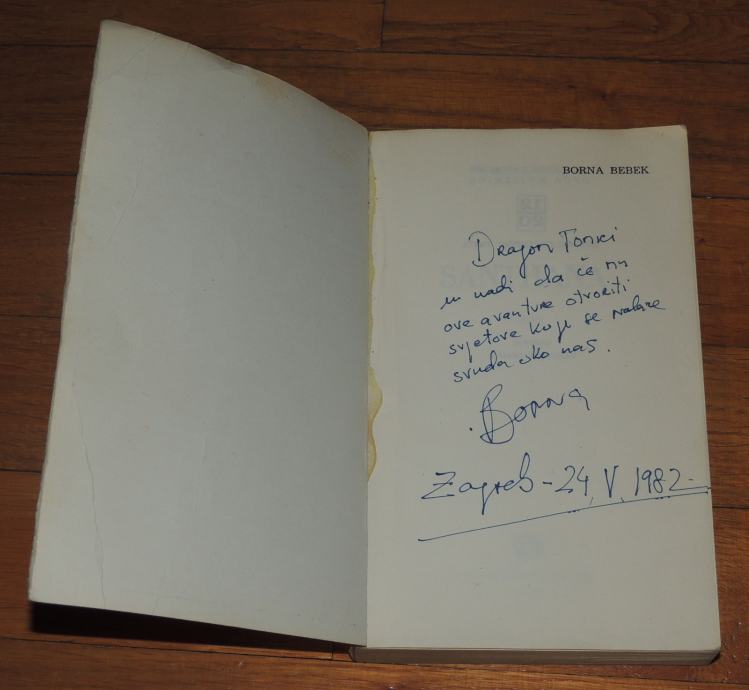 BORNA BEBEK
Dragom Tonči
u nadi da će mu
ove avanture otvoriti
svjetove koji se nalaze
svuda oko nas.
Borna
Zagreb - 24. V. 1982.